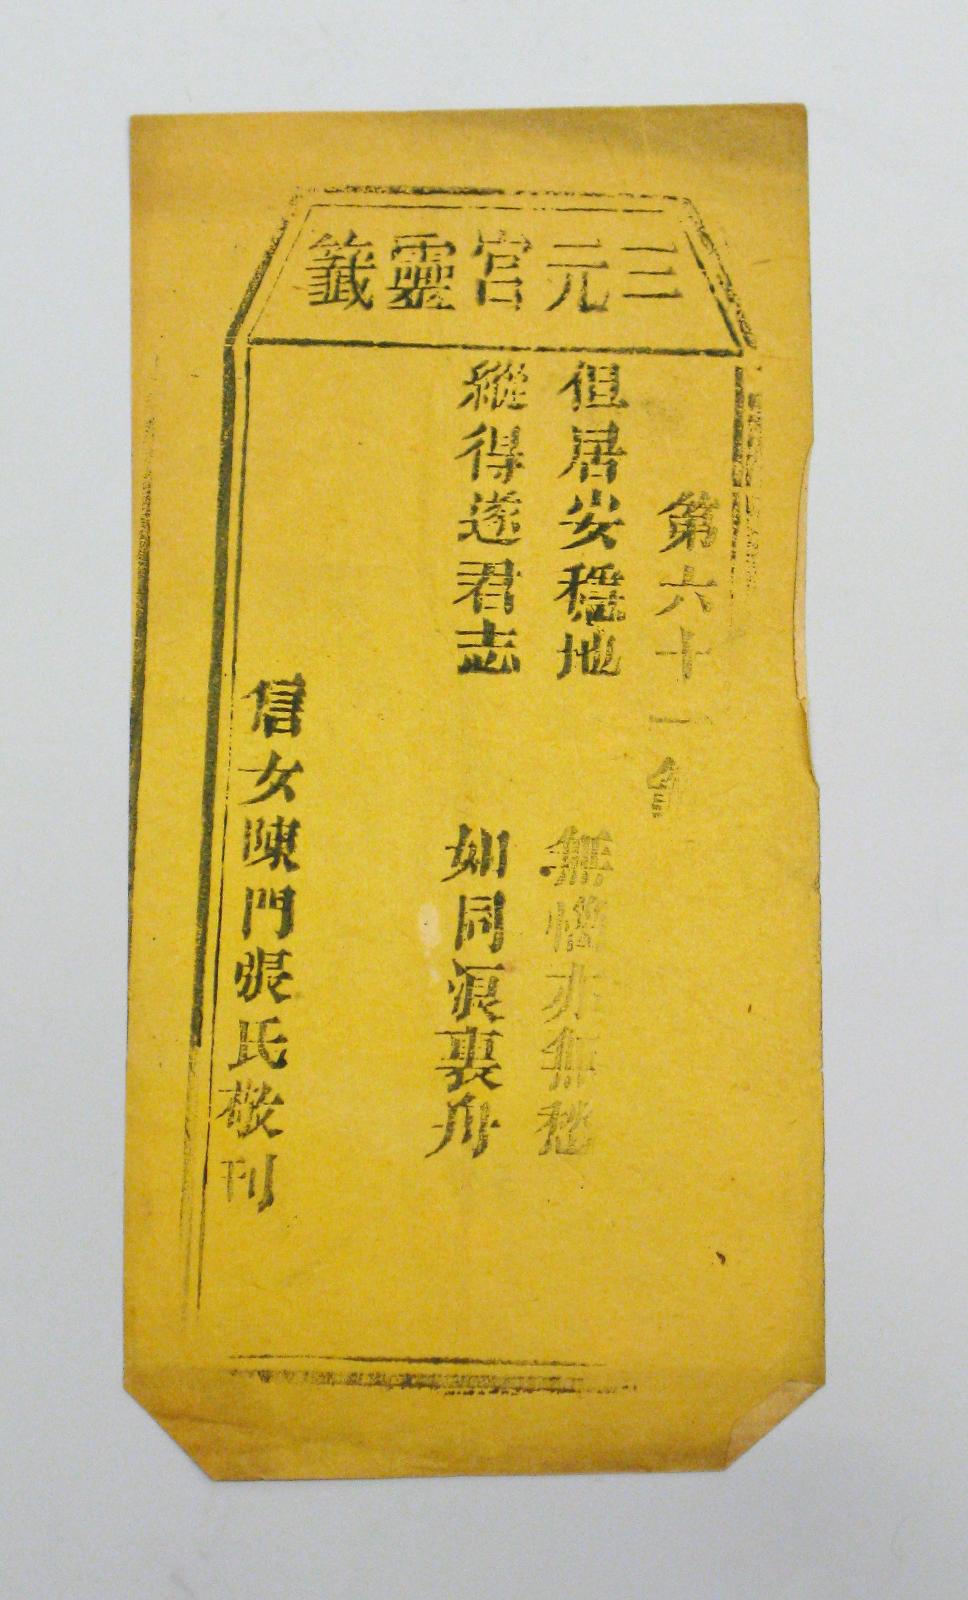 三元宮靈籤
第六十一
但居安穩地 無亦無愁
縱得遂君志 如同浪裏舟
信女陳門張氏敬刊